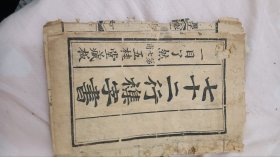 七十二行雜字書
一目了然
五桂堂藏板